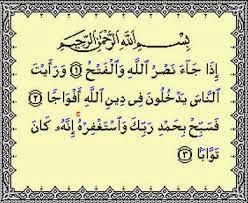 بِسْمِ اللَّهِ الرَّحْمَٰنِ الرَّحِيمِ
إِذَا جَآءَ نَصْرُ اللَّهِ وَالْفَتْحُ ١ وَرَأَيْتَ
النَّاسَ يَدْخُلُونَ فِى دِينِ اللَّهِ أَفْوَاجًا ٢
فَسَبِّحْ بِحَمْدِ رَبِّكَ وَاسْتَغْفِرْهُ ۚ إِنَّهُۥ كَانَ
تَوَّابًا ٣